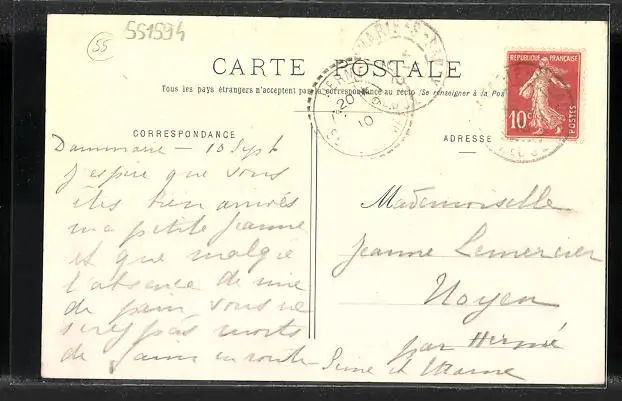 55
551594
CARTE POSTALE
Tous les pays étrangers n'acceptent pas la correspondance au recto (Se renseigner à la Pos
RÉPUBLIQUE FRANÇAISE
10c
POSTES
CORRESPONDANCE
ADRESSE
Dammarie - 10 Sept
J'espère que vous
êtes bien arrivés
ma petite Jeanne
et que malgré
l'absence de mie
de pain vous ne
serez pas morts
de faim en route
Mademoiselle
Jeanne Lemercier
Noyen
par Hermé
Seine et Marne